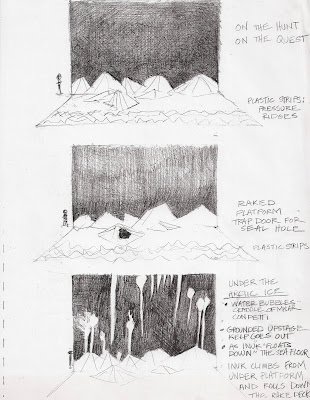 ON THE HUNT
ON THE QUEST
PLASTIC STRIPS:
PRESSURE
RIDGES
RAKED
PLATFORM
TRAP DOOR FOR
SEAL HOLE
PLASTIC STRIPS
UNDER THE
ARCTIC ICE
• WATER BUBBLES
MYLAR
CONFETTI
• GROUNDED UPSTAGE
KELP GOES OUT
• AS INUK "FLOATS
DOWN" THE SEA FLOOR
INUK CLIMBS FROM
UNDER PLATFORM
AND ROLLS DOWN
THE RAKE DECK